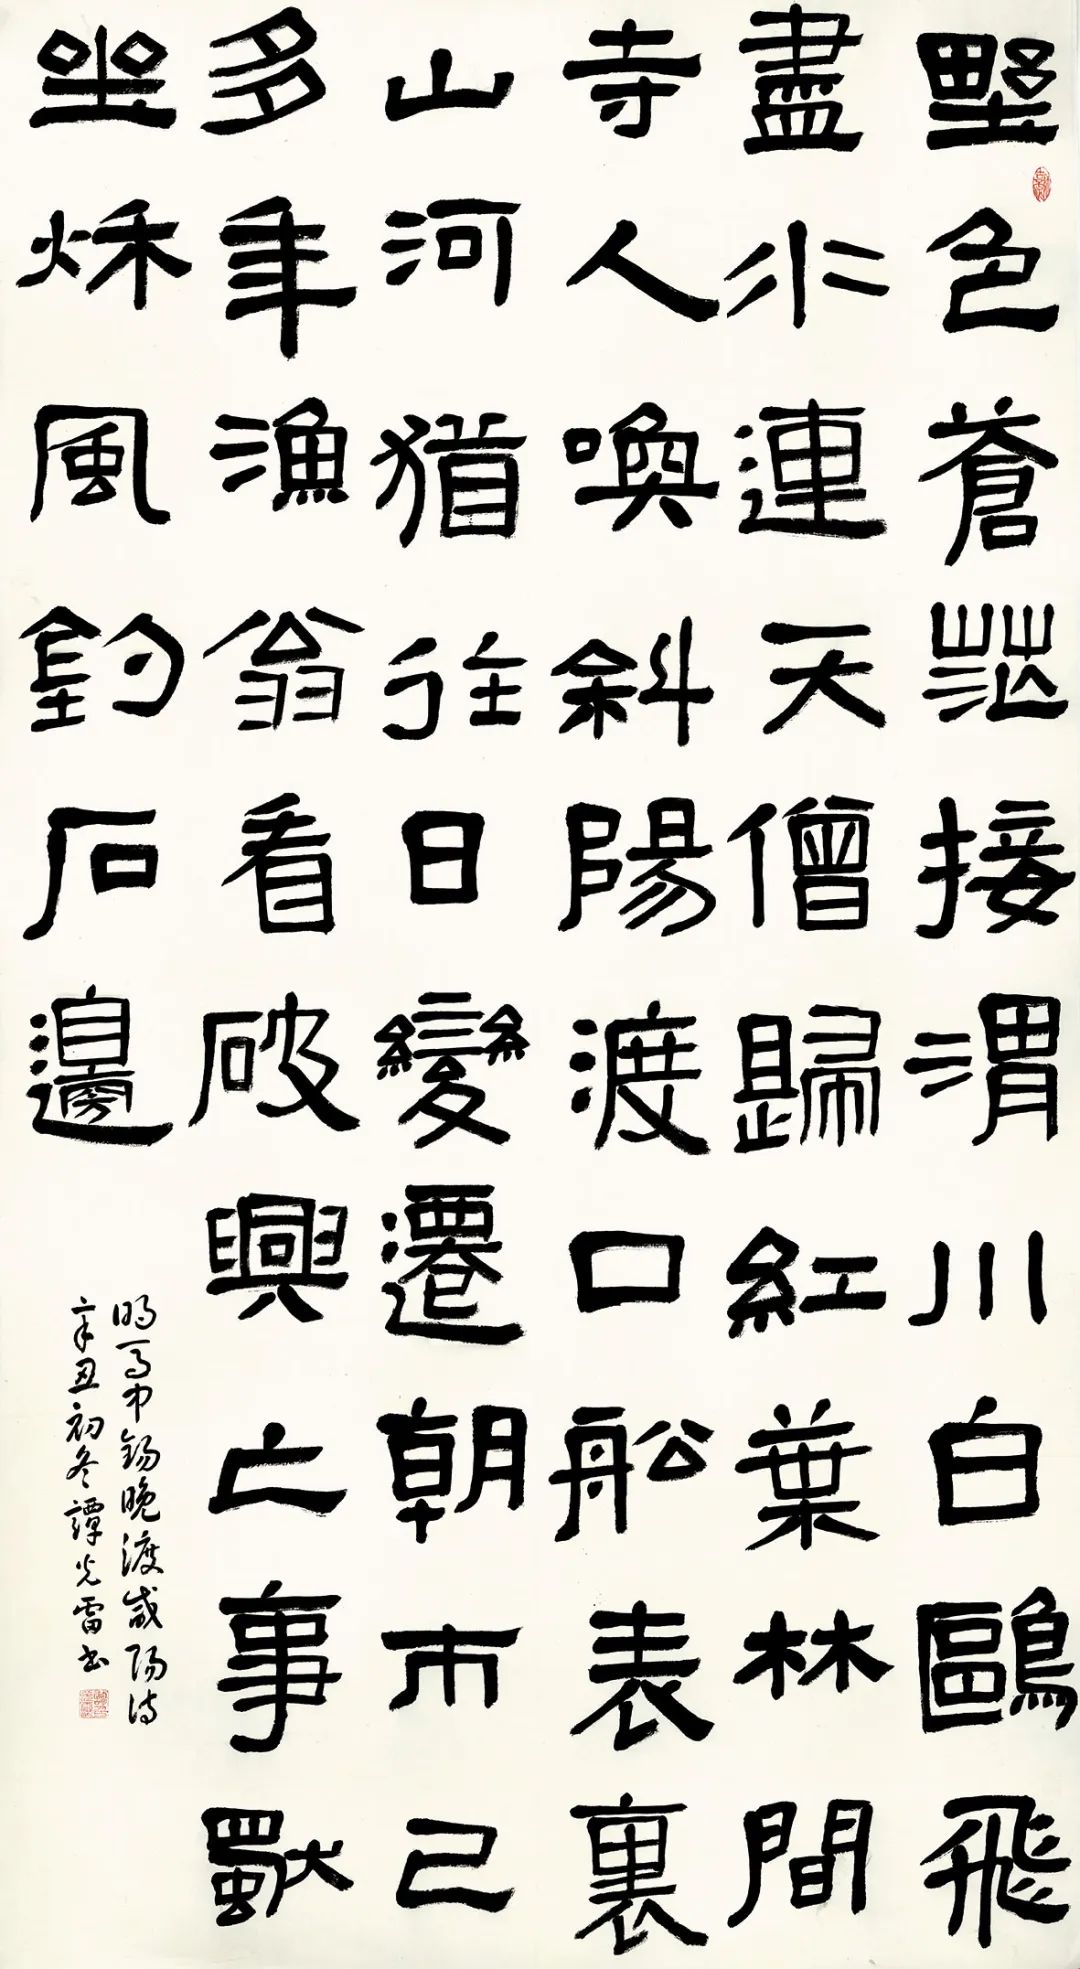 野色蒼茫接渭川白鷗飛
盡水連天僧歸紅葉林間
寺人喚斜陽渡口船表裏
山河猶往日變遷朝市已
多年漁翁看破興亡事獨
坐秌風釣石邊
明馬中錫晚渡咸陽詩
辛丑初冬譚光雷書